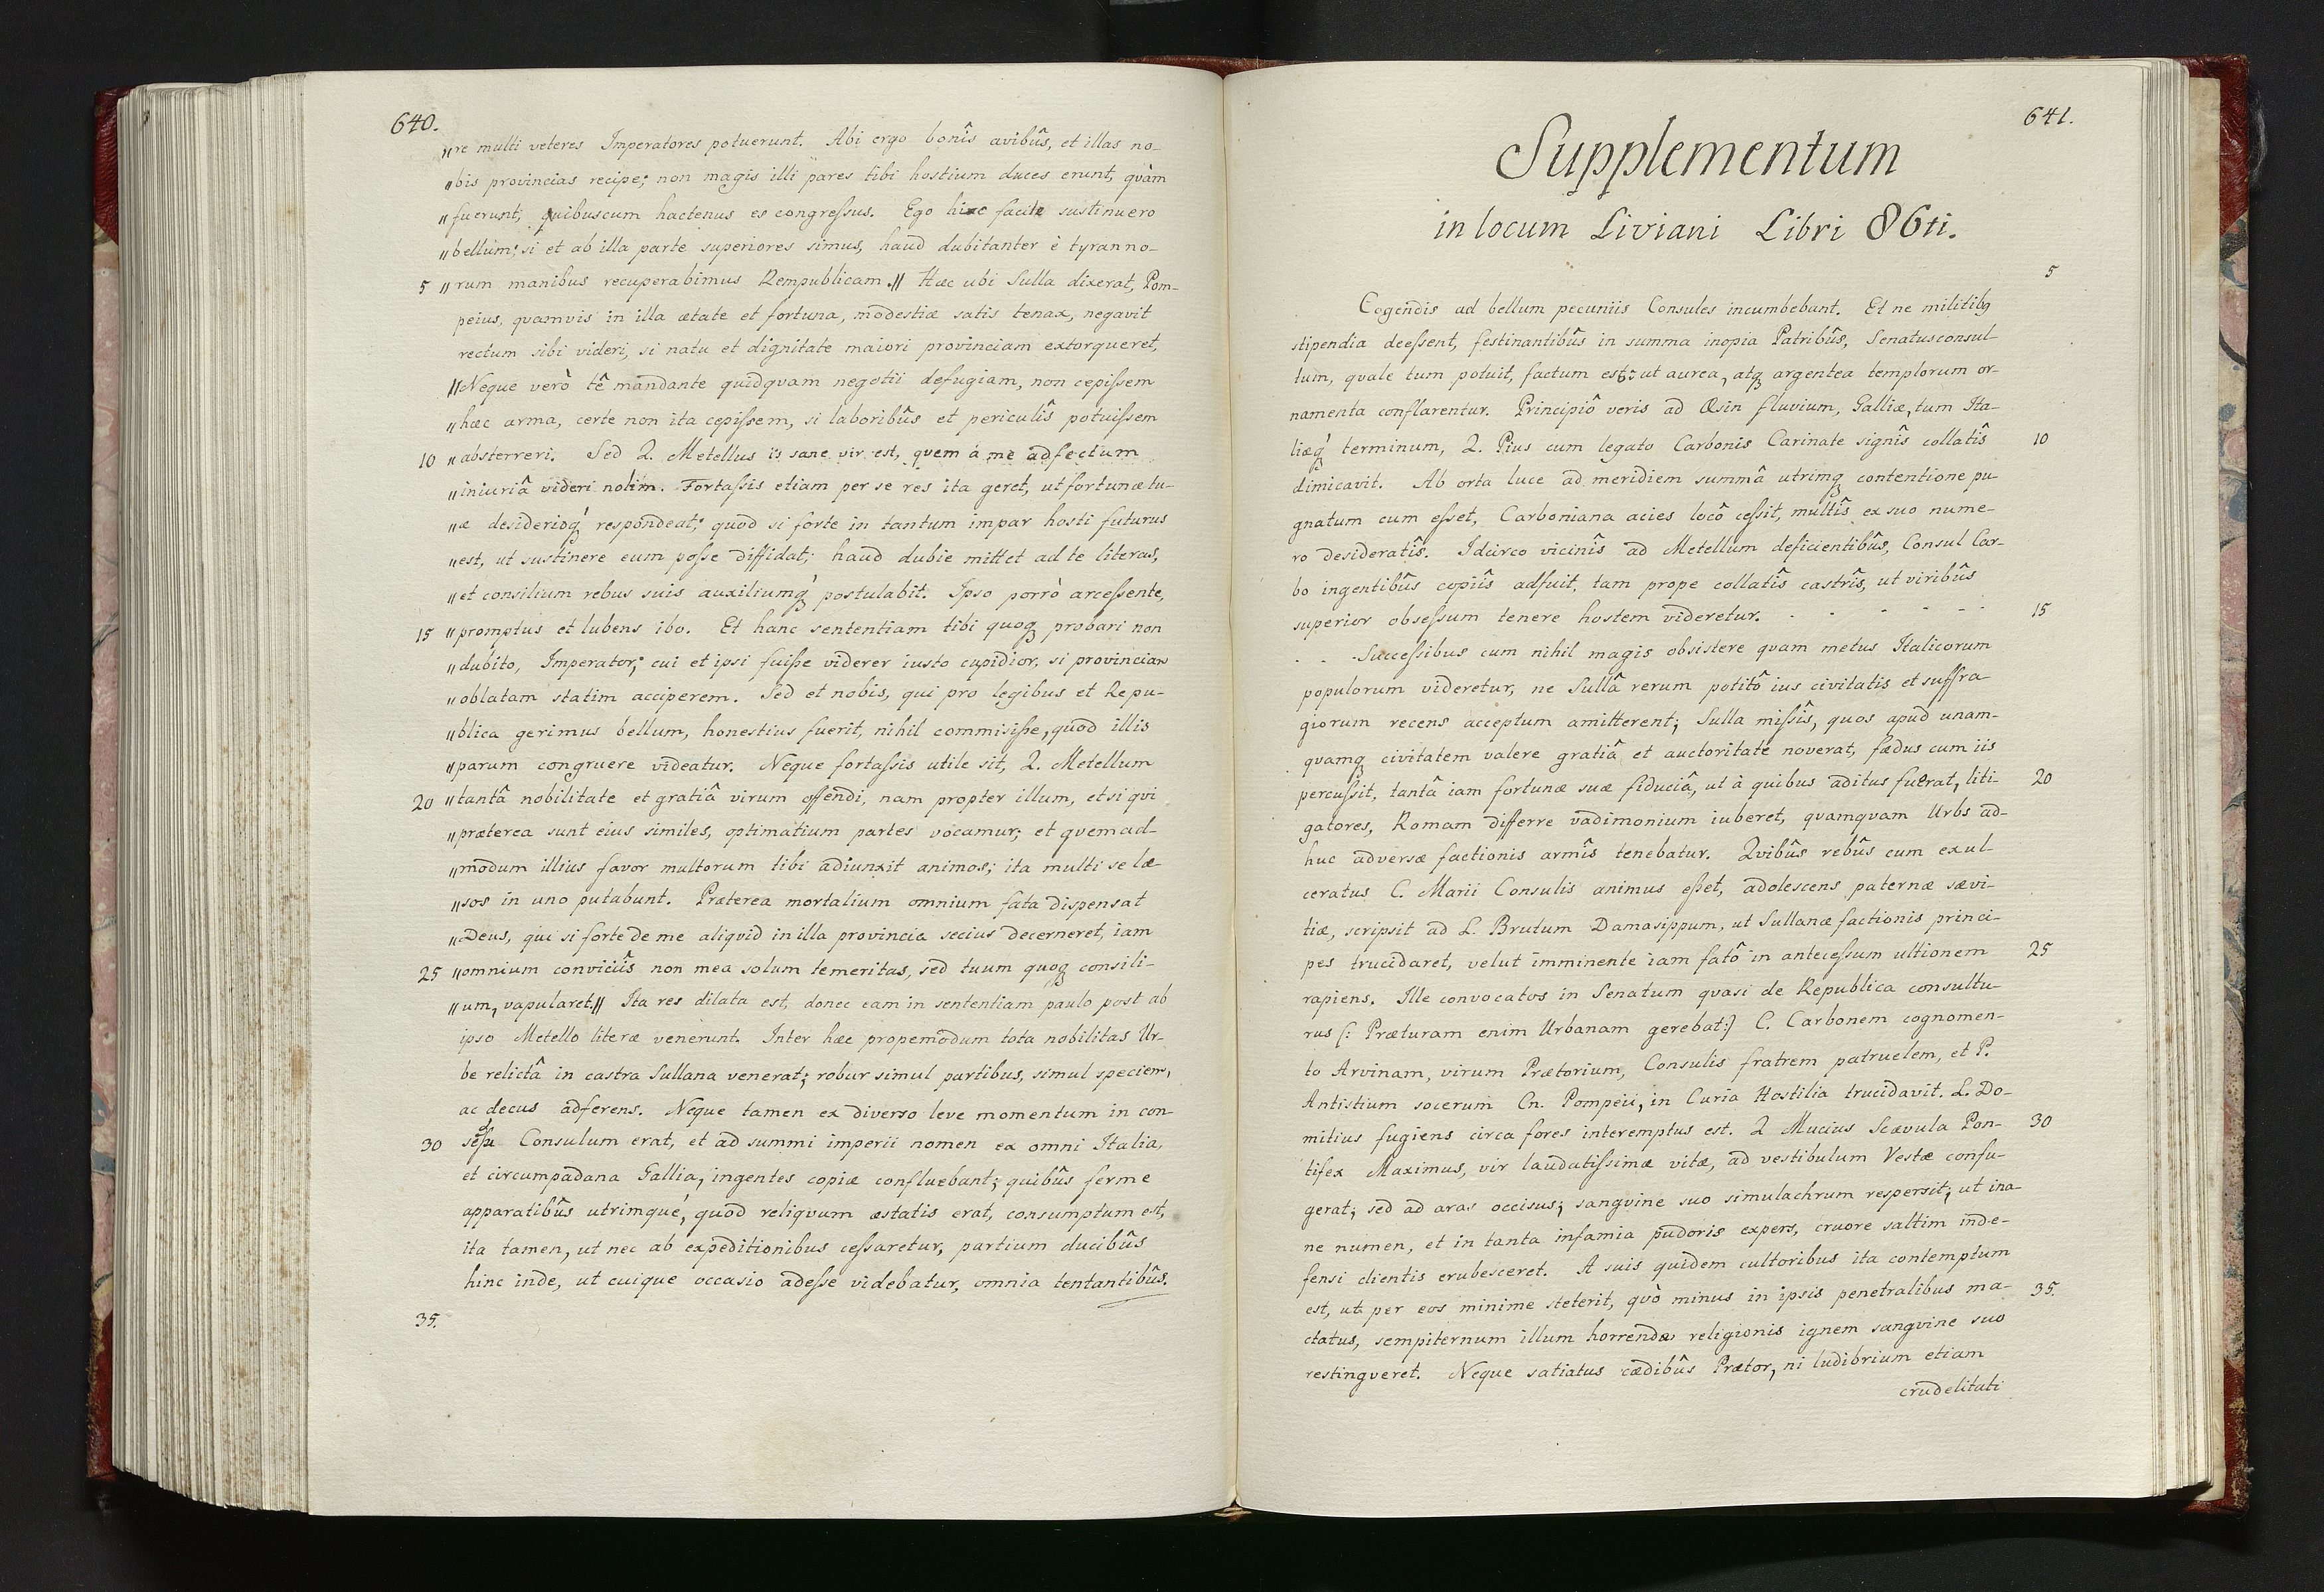 640.
"re multi veteres Imperatores potuerunt. Abi ergo bonîs avibûs, et illas no-
"bis provincias recipe; non magis illi pares tibi hostium duces erunt, qvàm
"fuerunt; quibuscum hactenus es congreſsus. Ego hinc facile sustinuero
"bellum; si et ab illa parte superiores simus, haud dubitanter è tyranno-
5 "rum manibus recuperabimus Rempublicam." Hæc ubi Sulla dixerat, Pom-
peius, quamvis in illa ætate et fortuna, modestiæ satis tenax, negavit
rectum sibi videri, si natu et dignitate maiori provinciam extorqueret,
"Neque verò tê mandante quidqvam negotii defugiam, non cepiſsem
"hæc arma, certe non ita cepiſsem, si laboribûs et periculîs potuiſsem
10 "absterreri. Sed Q. Metellus is sane vir est, qvem á me adfectum
"iniuriâ videri nolim. Fortaſsis etiam per se res ita geret, ut fortunæ tu-
"æ desiderioq́ꝫ respondeat; quod si forte in tantum impar hosti futurus
"est, ut sustinere eum poſse diffidat; haud dubie mittet ad te literas,
"et consilium rebus suis auxiliumq́ꝫ postulabit. Ipso porrò arceſsente,
15 "promptus et lubens ibo. Et hanc sententiam tibi quoqꝫ probari non
"dubito, Imperator; cui et ipsi fuiſse viderer iusto cupidior, si provinciam
"oblatam statim acciperem. Sed et nobis, qui pro legibus et Repu-
"blica gerimus bellum, honestius fuerit, nihil commisiſse, quod illis
"parum congruere videatur. Neque fortaſsis utile sit, Q. Metellum
20 "tantâ nobilitate et gratiâ virum offendi, nam propter illum, etsi qvi
"præterea sunt eius similes, optimatium partes vocamur; et qvemad-
"modum illius favor multorum tibi adiunxit animos; ita multi se læ-
"sos in uno putabunt. Præterea mortalium omnium fata dispensat
"Deus, qui si forte de me aliqvid in illa provincia secius decerneret, iam
25 "omnium conviciîs non mea solum temeritas, sed tuum quoqꝫ consili-
"um, vapularet." Ita res dilata est, donec eam in sententiam paulo post ab
ipso Metello literæ venerunt. Inter hæc propemodum tota nobilitas Ur-
be relictâ in castra Sullana venerat; robur simul partibus, simul speciem,
ac decus adferens. Neque tamen ex diverso leve momentum in con-
30 seſsu Consulum erat, et ad summi imperii nomen ex omni Italia,
et circumpadana Gallia, ingentes copiæ confluebant; quibûs ferme
apparatibûs utrimqué, quod reliqvum æstatis erat, consumptum est,
ita tamen, ut nec ab expeditionibus ceſsaretur, partium ducibûs
hinc inde, ut cuique occasio adeſse videbatur, omnia tentantibûs.
35.
641.
Supplementum
in locum Liviani Libri 86ti.
5
Cogendis ad bellum pecuniis Consules incumbebant. Et ne militibꝫ
stipendia deeſsent, festinantibûs in summa inopia Patribûs, Senatusconsul-
tum, qvale tum potuit, factum est: ut aurea, atqꝫ argentea templorum or-
namenta conflarentur. Principiô veris ad Œsin fluvium, Galliæ, tum Ita-
liæq́ꝫ terminum, Q. Pius cum legato Carbonis Carinate signîs collatîs 10
dimicavit. Ab orta luce ad meridiem summâ utrimqꝫ contentione pu-
gnatum cum eſset, Carboniana acies locô ceſsit, multîs ex suo nume-
ro desideratîs. Idcirco vicinîs ad Metellum deficientibûs, Consul Car-
bo ingentibûs copiîs adfuit, tam prope collatîs castrîs, ut viribûs
superior obseſsum tenere hostem videretur. . - - - - - 15
. . . Succeſsibus cum nihil magis obsistere qvam metus Italicorum
populorum videretur, ne Sullâ rerum potitô ius civitatis et suffra-
giorum recens acceptum amitterent; Sulla miſsîs, quos apud unam-
qvamqꝫ civitatem valere gratiâ et auctoritate noverat, fædus cum iis
percuſsit, tantâ iam fortunæ suæ fiduciâ, ut à quibus aditus fuerat, liti- 20
gatores, Romam differre vadimonium iuberet, qvamqvam Urbs ad-
huc adversæ factionis armîs tenebatur. Qvibûs rebûs cum exul-
ceratus C. Marii Consulis animus eſset, adolescens paternæ sævi-
tiæ, scripsit ad L. Brutum Damasippum, ut Sullanæ factionis princi-
pes trucidaret, velut imminente iam fatô in anteceſsum ultionem 25
rapiens. Ille convocatos in Senatum qvasi de Republica consultu-
rus (: Præturam enim Urbanam gerebat:) C. Carbonem cognomen-
to Arvinam, virum Prætorium, Consulis fratrem patruelem, et P.
Antistium socerum Cn. Pompeii, in Curia Hostilia trucidavit. L. Do-
mitius fugiens circa fores interemptus est. Q Mucius Scævula Pon- 30
tifex Maximus, vir laudatiſsimæ vitæ, ad vestibulum Vestæ confu-
gerat; sed ad aras occisus; sangvine suo simulachrum respersit; ut ina-
ne numen, et in tanta infamia pudoris expers, cruore saltim inde-
fensi clientis erubesceret. A suis quidem cultoribus ita contemptum
est, ut per eos minime steterit, qvò minus in ipsis penetralibus ma- 35.
ctatus, sempiternum illum horrendæ religionis ignem sangvine suo
restingveret. Neque satiatus cædibûs Prætor, ni ludibrium etiam
crudelitati